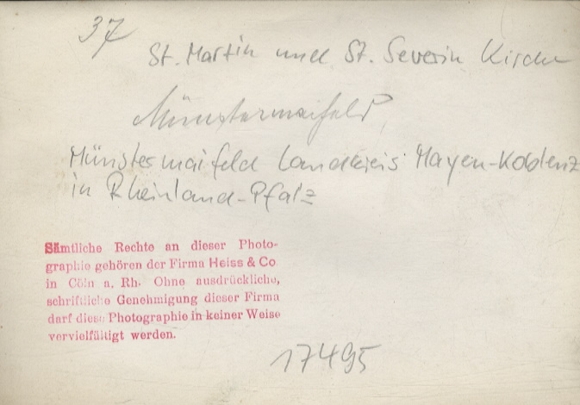 37
St. Martin und St. Severin Kirche
Münstermaifeld
Münstermaifeld Landkreis Mayen-Koblenz
in Rheinland-Pfalz
Sämtliche Rechte an dieser Photo-
graphie gehören der Firma Heiss & Co
in Cöln a. Rh. Ohne ausdrückliche,
schriftliche Genehmigung dieser Firma
darf diese Photographie in keiner Weise
vervielfältigt werden.
17495